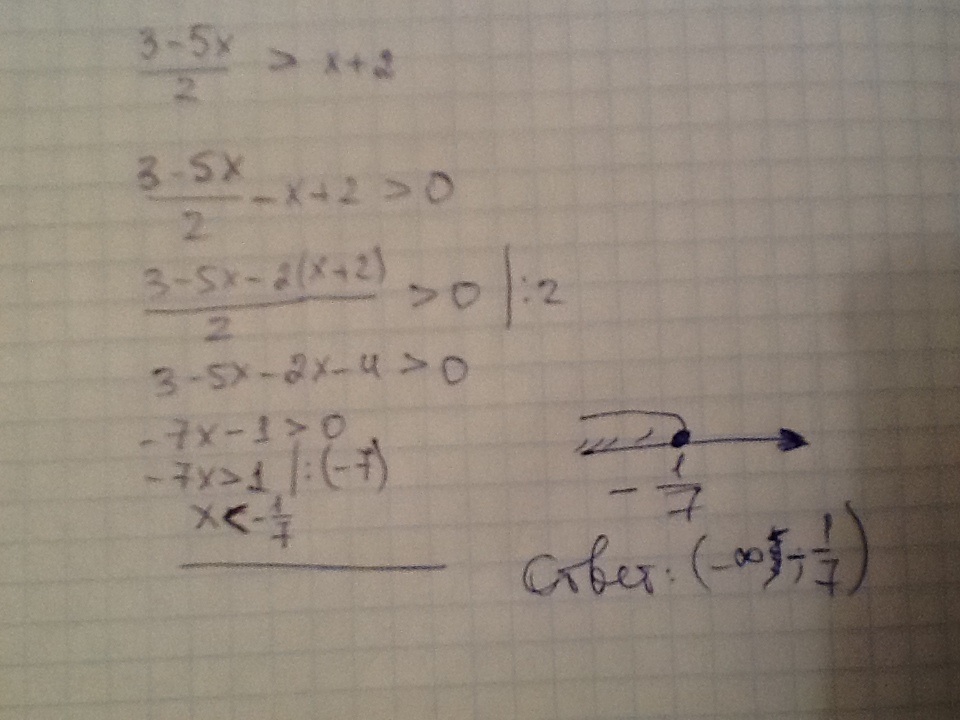 3-5x/2 > x+2
3-5x/2 - x+2 > 0
3-5x-2(x+2)/2 > 0 |:2
3-5x-2x-4 > 0
-7x-1 > 0
-7x>1 |:(-7)
x<-1/7
-1/7
Ответ: (-∞; -1/7)